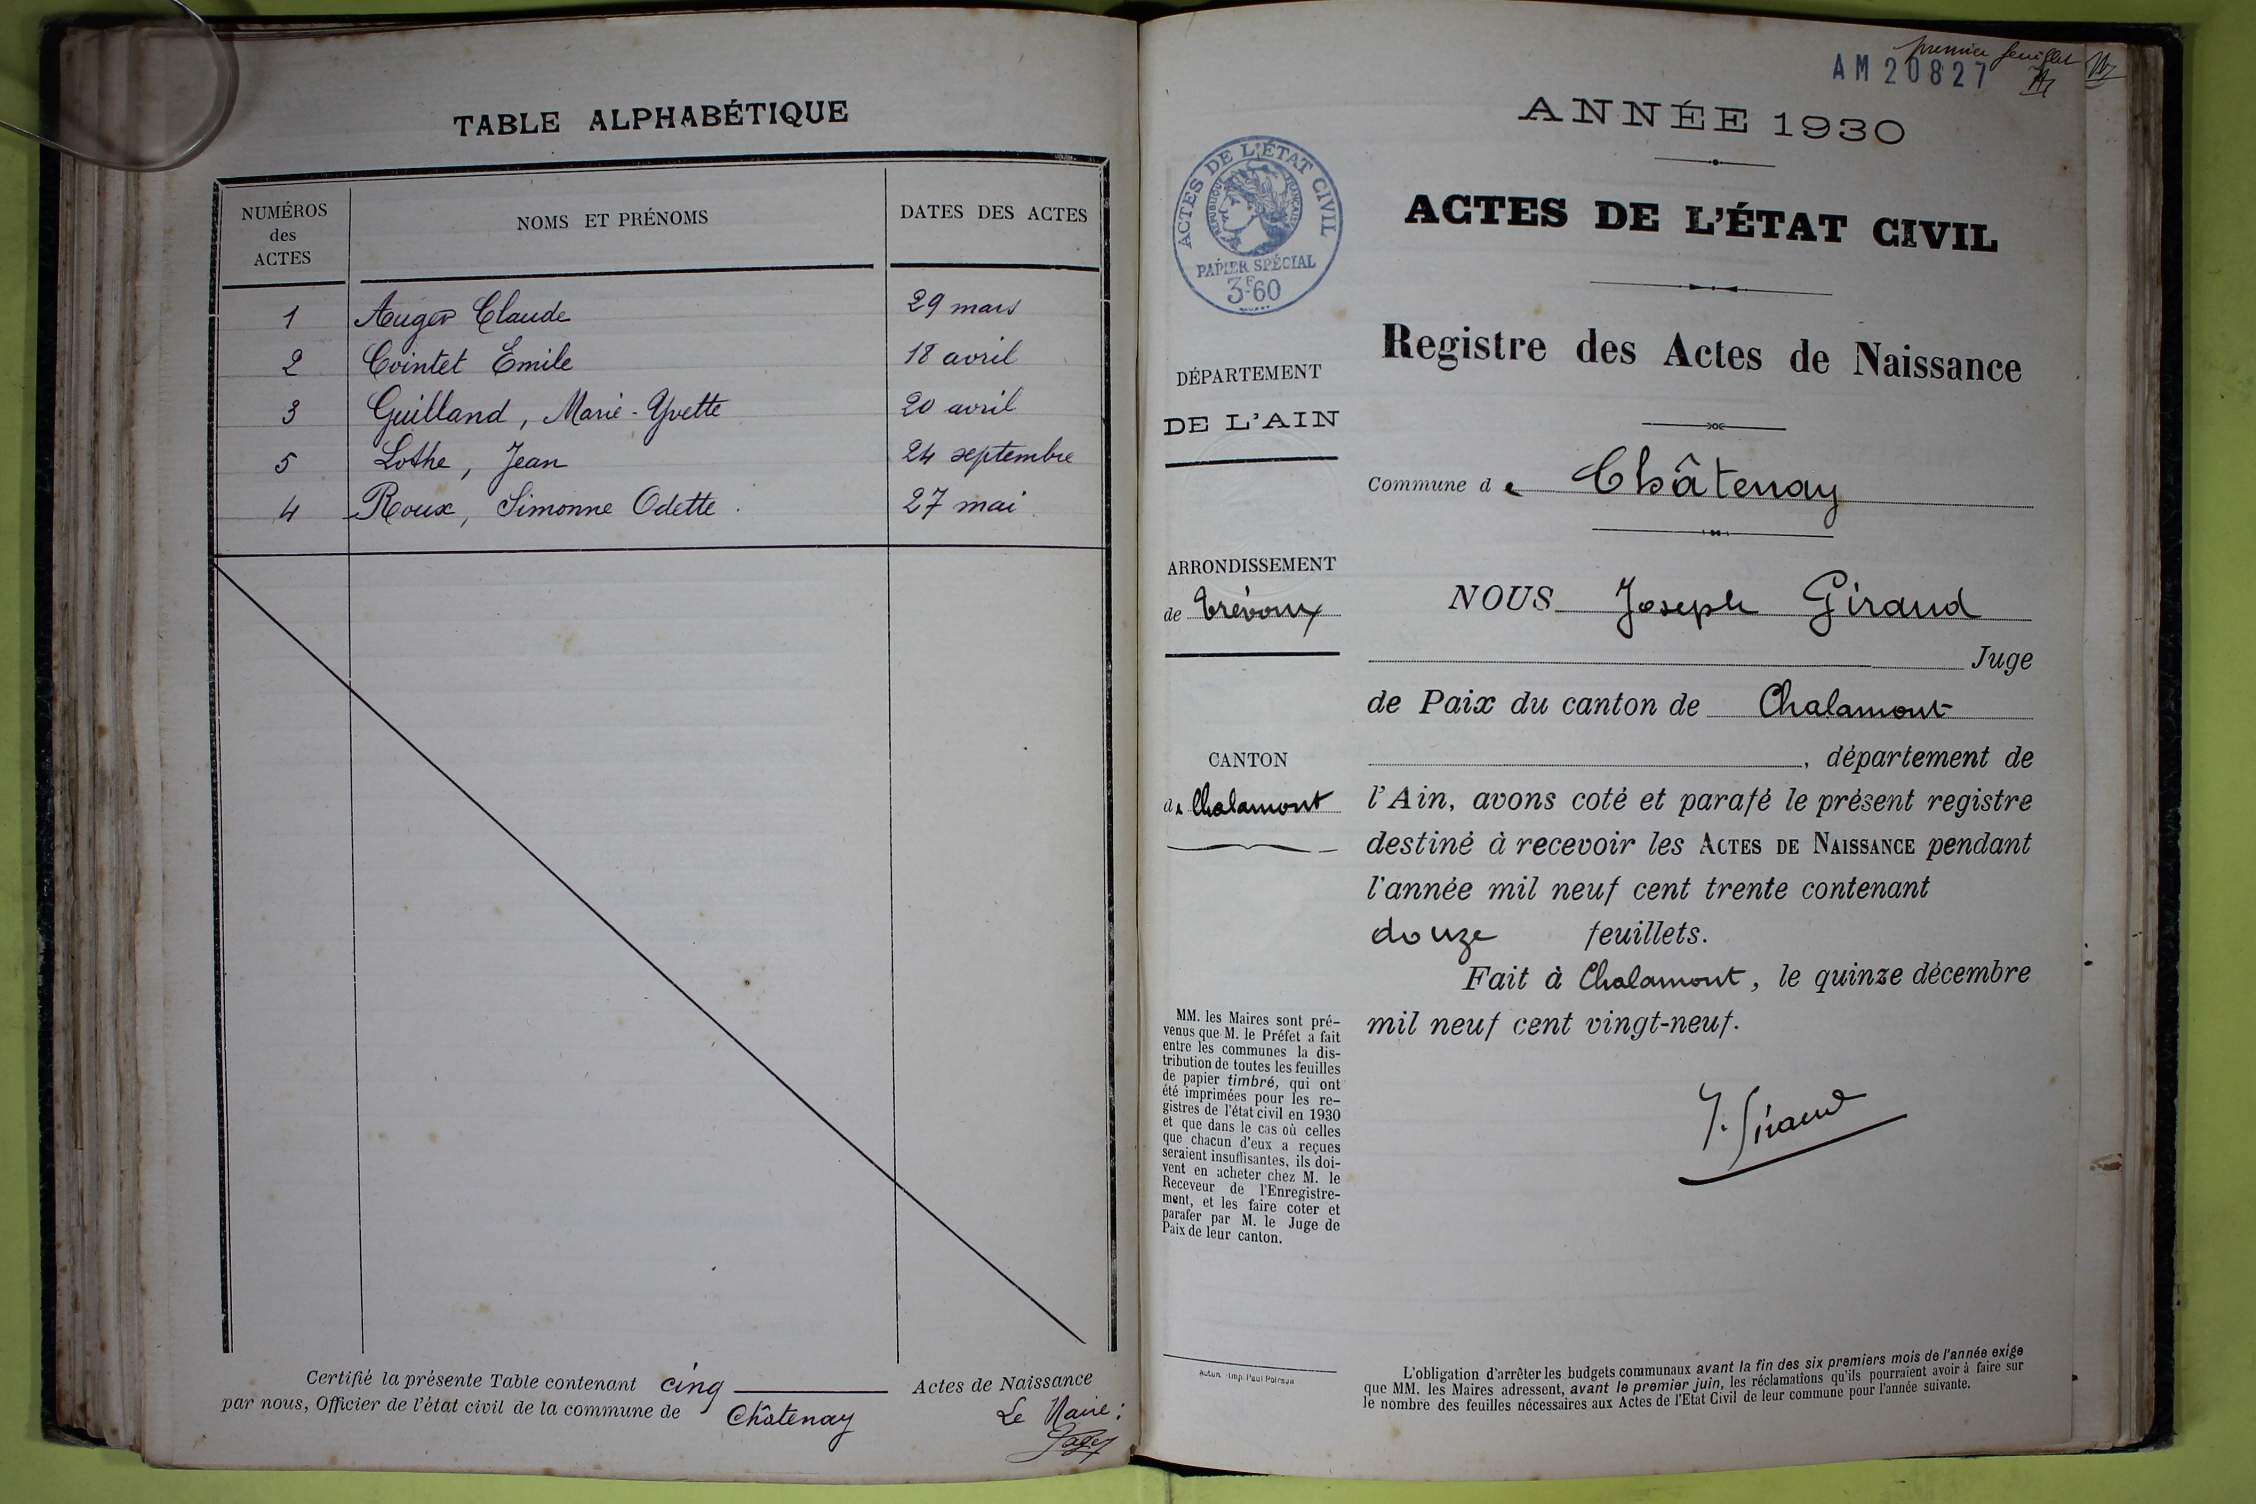 TABLE ALPHABÉTIQUE
NUMÉROS
des
ACTES
NOMS ET PRÉNOMS
DATES DES ACTES
1 Auger Claude 29 mars
2 Cointet Emile 18 avril
3 Guilland, Marie-Yvette 20 avril
5 Lothe, Jean 24 septembre
4 Roux, Simonne Odette. 27 mai
Certifié la présente Table contenant cinq Actes de Naissance
par nous, Officier de l'état civil de la commune de Châtenay
Le Maire:
premier feuillet
AM20827
ANNÉE 1930
ACTES DE L'ÉTAT CIVIL
RÉPUBLIQUE FRANÇAISE
PAPIER SPÉCIAL
3F60
ACTES DE L'ÉTAT CIVIL
Registre des Actes de Naissance
DÉPARTEMENT
DE L'AIN
Commune de Châtenay
ARRONDISSEMENT
de Trévoux
CANTON
de Chalamont
NOUS Joseph Giraud
Juge
de Paix du canton de Chalamont
, département de
l'Ain, avons coté et parafé le présent registre
destiné à recevoir les ACTES DE NAISSANCE pendant
l'année mil neuf cent trente contenant
douze feuillets.
Fait à Chalamont, le quinze décembre
mil neuf cent vingt-neuf.
J. Giraud
MM. les Maires sont pré-
venus que M. le Préfet a fait
entre les communes la dis-
tribution de toutes les feuilles
de papier timbré, qui ont
été imprimées pour les re-
gistres de l'état civil en 1930
et que dans le cas où celles
que chacun d'eux a reçues
seraient insuffisantes, ils doi-
vent en acheter chez M. le
Receveur de l'Enregistre-
ment, et les faire coter et
parafer par M. le Juge de
Paix de leur canton.
Autun. - Imp. Paul Poirson
L'obligation d'arrêter les budgets communaux avant la fin des six premiers mois de l'année exige
que MM. les Maires adressent, avant le premier juin, les réclamations qu'ils pourraient avoir à faire sur
le nombre des feuilles nécessaires aux Actes de l'Etat Civil de leur commune pour l'année suivante.